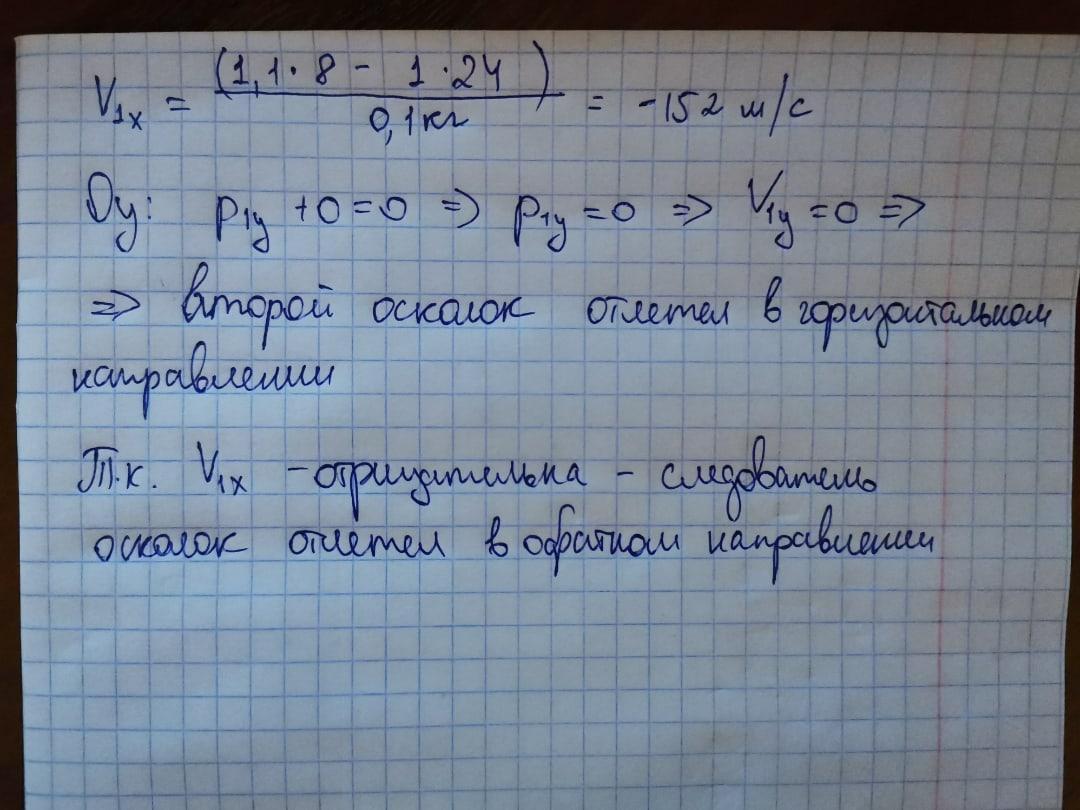 V₁ₓ = (1,1·8 - 1·24) / 0,1кг = -152 м/с
Оу: p₁у + 0 = 0 => p₁у = 0 => V₁у = 0 =>
=> второй осколок отлетел в горизонтальном
направлении
Т.к. V₁ₓ - отрицательна - следователь
осколок отлетел в обратном направлении